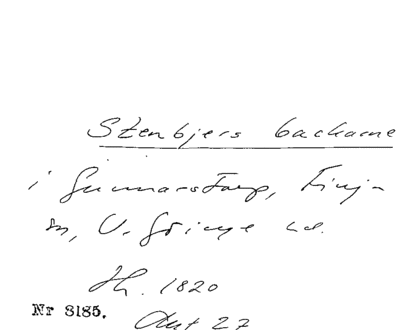 Stenbjers backarne
i Gunnarstorp, Finja
sn, V. Göinge hd.
Jh. 1820
Nr 8185.
Akt 27